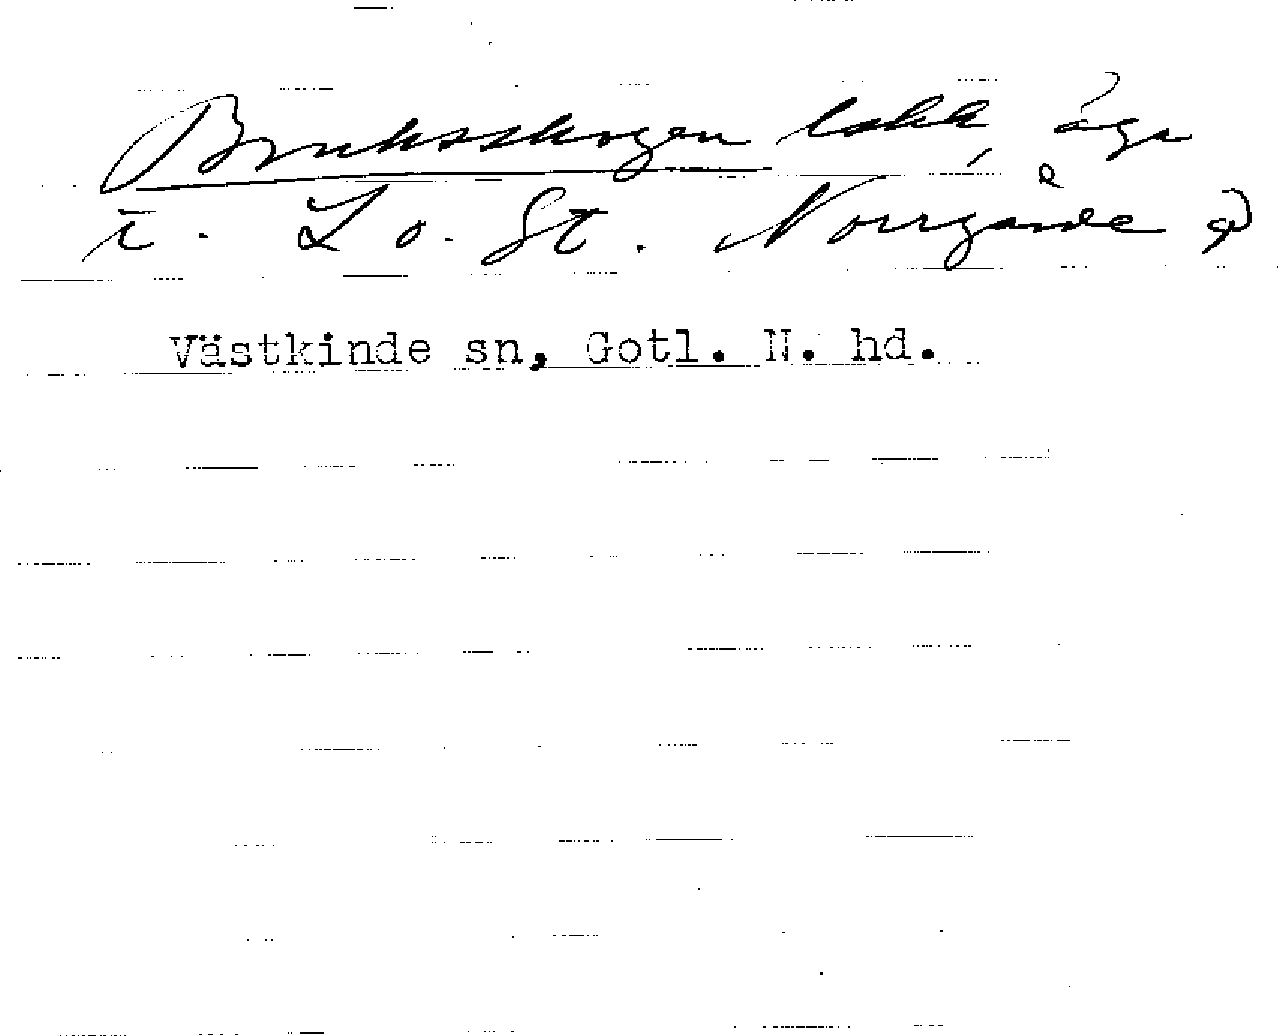 Bruksskogen lokal, äga
i L. o. St. Norrgårde
Västkinde sn, Gotl. N. hd.